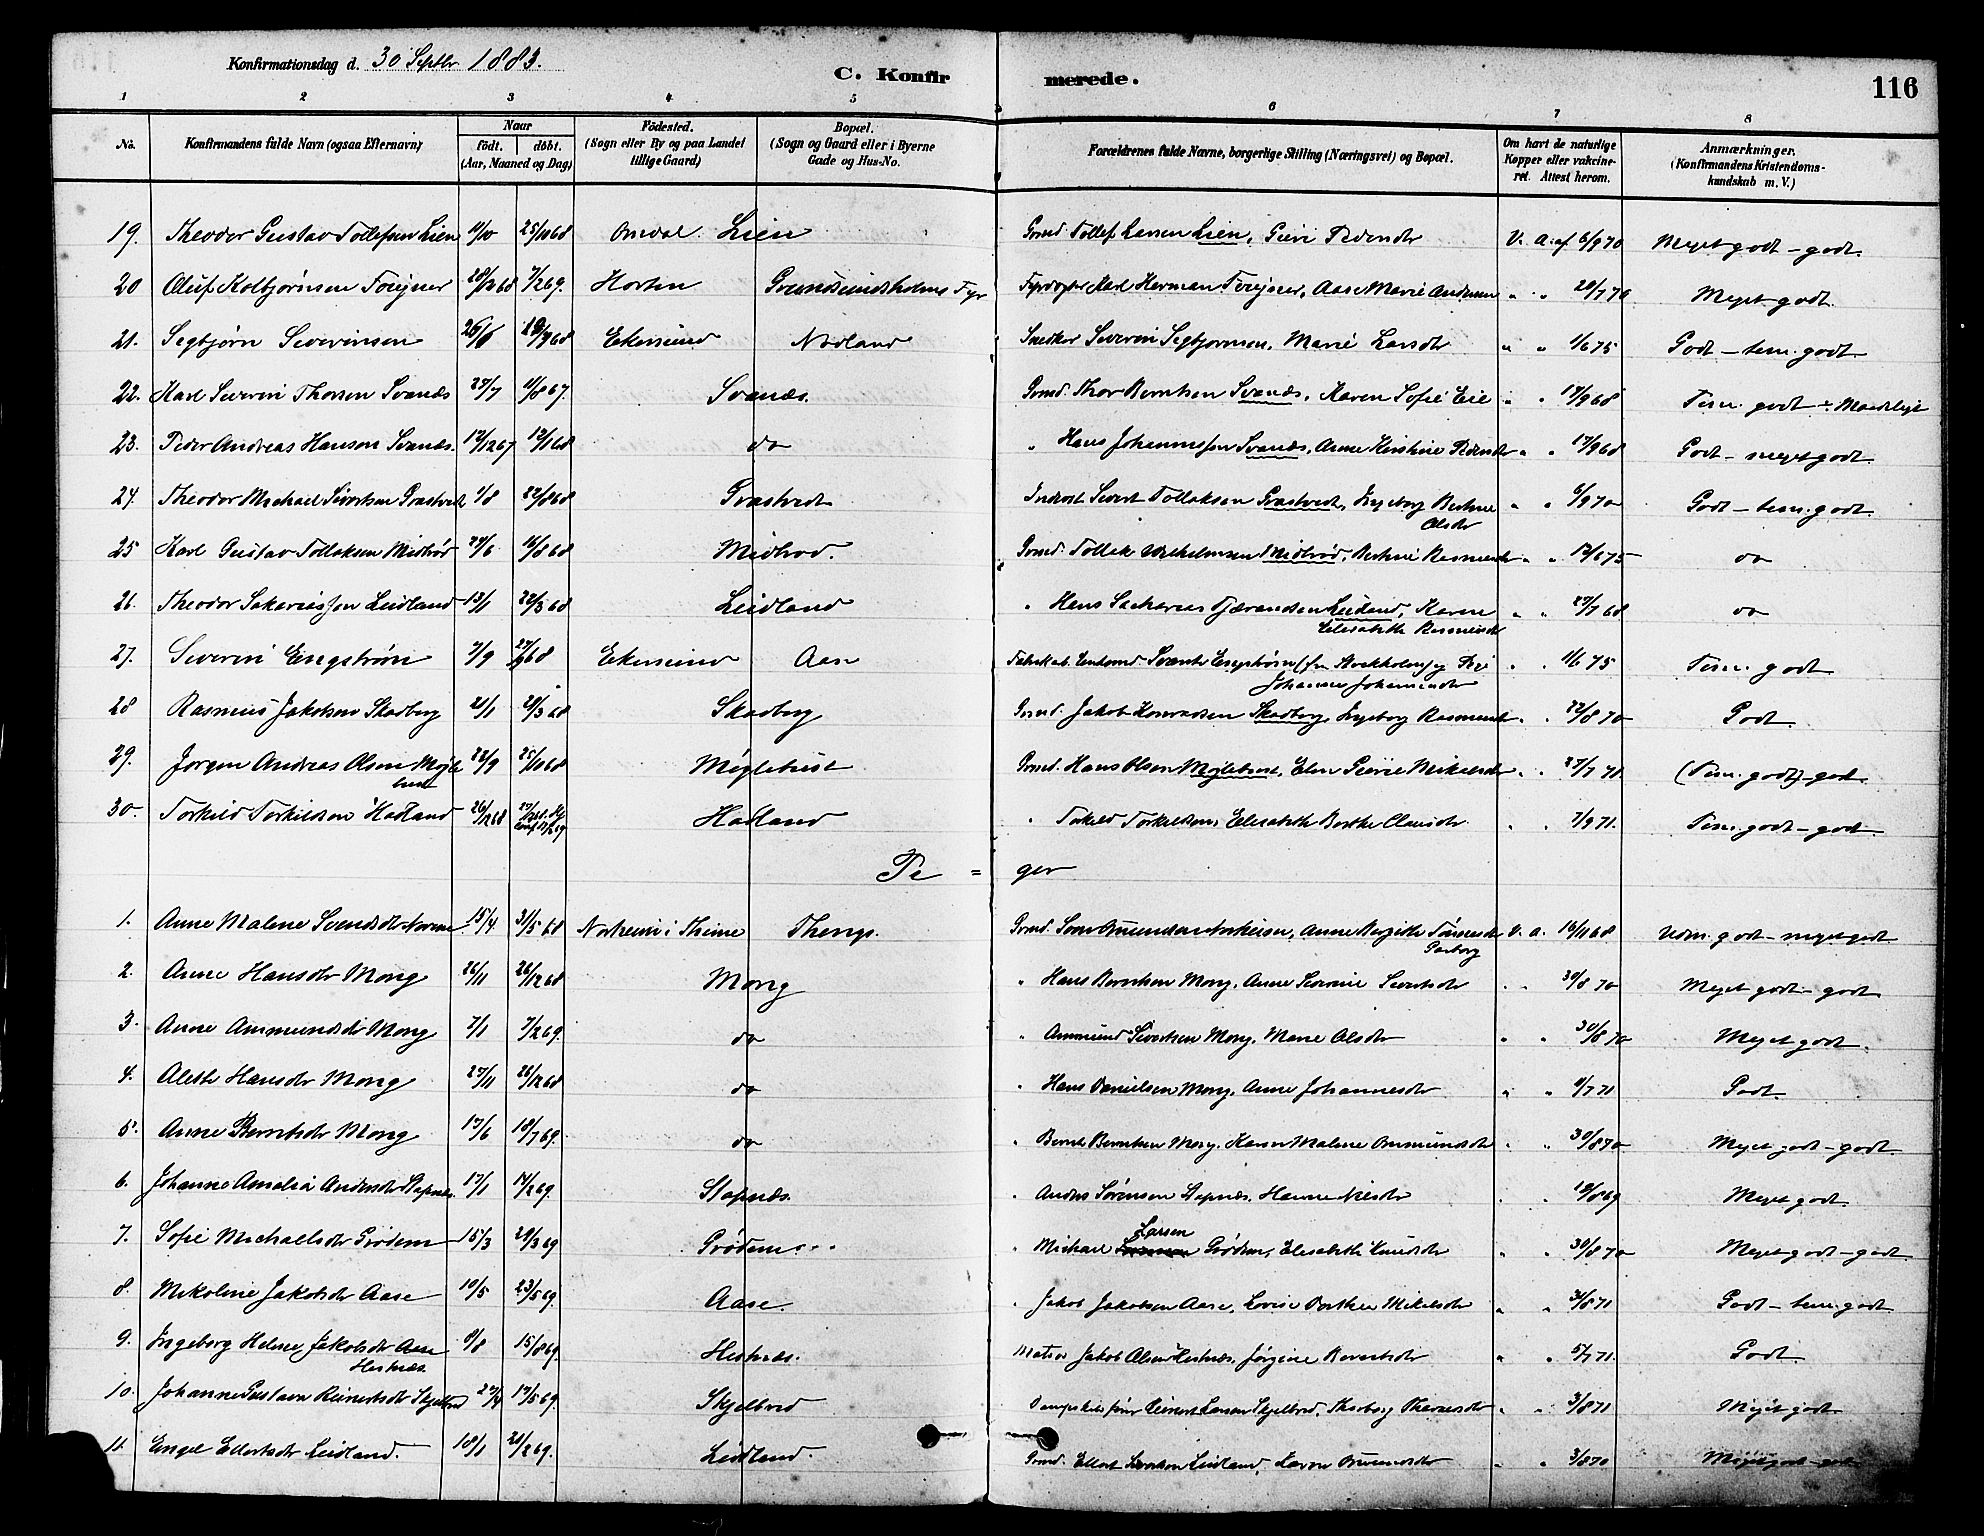 Konfirmationsdag d. 30 Septbr 1883.
C. Konfir
merede.
116
1 2 3 4 5 6 7 8
No. Konfirmandens fulde Navn (ogsaa Efternavn) Naar födt. döbt. (Aar, Maaned og Dag) Födested. (Sogn eller By og paa Landet tillige Gaard) Bopæl. (Sogn og Gaard eller i Byerne Gade og Hus-No. Forældrenes fulde Navne, borgerlige Stilling (Næringsvei) og Bopæl. Om havt de naturlige Kopper eller vakcineret. Attest herom. Anmærkninger. (Konfirmandens Kristendomskundskab m. V.)
19. Theodor Gustav Tollefsen Lien 11/10 25/10 68 Lien Grmd. Tollef Larsen Lien, Pedersdtr V. A. af 6/9 70 Meget godt - godt.
20 Oluf Kolbjørnsen 28/12 68 7/2 69. Horten Grundsundholmens Fyr Herman Aase Marie Andersen " " 20/7 70 Meget godt.
21. Segbjørn Severinsen Ekersund Nodland Snedker Severin Segbjørnsen, Marie Larsdtr " " 1/6 75 Godt - tem. godt
22. Karl Severin Thorsen Svanæs 27/7 11/8 67. Svanæs. Grmd. Thor Berntsen Svanæs, Karen Sofie Eie " " 17/9 68 Tem. godt - Maadeligt
23. Peder Andreas Hansen Svanæs. 12/12 67 12/1 68 do " Hans Johannessen Svanæs, Anne Kirstine Pedersdtr " " 17/9 68 Godt - meget godt.
24. Theodor Michael Sivertsen Grastvedt 1/8 22/8 68 Grastvedt Sivert Tollaksen Grastvedt, Ingeborg Bertine Olsdtr " " 6/9 70 Godt - tem. godt.
25 Karl Gustav Tollaksen Midbrød 27/6 16/8 68 Midbrod. Grmd. Tollak Midbrød, Bertine Rasmusdtr " " 12/6 75 do
26. Theodor Sakariassen Leidland 13/1 22/3 68 Leidland " Hans Sacharias Tjærandsen Leidland, Karen Elisabeth Rasmusdtr " " 27/7 68 do
27. Severin Engstrøm 7/9 27/9 68 Ekersund Aase Svante Engstrøm (fra Stockholm) og Johanne Johannesdtr " " 1/6 75 Tem. godt
28 Rasmus Jakobsen Skadberg 21/1 29/3 68 Skadberg Grmd. Jakob Konradsen Skadberg, Ingeborg Rasmusdtr " " 22/8 70 Godt.
29. Jørgen Andreas Olsen Møglebust 22/9 25/10 68 Møglebust Grmd. Hans Olsen Møglebust, Elen Mikkelsdtr " " 27/7 71. (Tem. godt) - godt.
30. Torkild Torkildsen Hadland 26/12 68 Hadland " Torkild Torkildsen, Elisabeth Berthe Clausdtr " " 7/9 71. Tem. godt - godt.
Pi = ger
1. Anne Malene Svendsdtr 15/4 31/5 68 Norheim i Thime Thengs. Grmd. Anne Bergitte Garborg V. A. 16/11 68 Udm. godt - meget godt
2. Anne Hansdtr Mong 26/11 26/12 68 Mong " Hans Berntsen Mong, Anne Severine Sivertsdtr " " 30/8 70 Meget godt - godt
3. Anne Ammundsdtr Mong 7/1 7/2 69. do " Ammund Sivertsen Mong, Marie Olsdtr " " 30/8 70 Meget godt.
4. Alette Hansdtr Mong 27/11 26/12 68 do " Hans Danielsen Mong, Anne Johannesdtr " " 4/7 71 Godt.
5. Anne Berntsdtr Mong 17/6 18/7 69. do " Bernt Berntsen Mong, Karen Malene Ommundsdtr " " 30/8 70 Meget godt - godt.
6. Johanne Amalia Andersdtr Stapnes 17/1 14/2 69. Stapnæs. " Anders Sørensen Stapnæs, Hanne Nilsdtr " " 18/8 69 Meget godt.
7. Sofie Michaelsdtr Grødem 15/3 29/3 69 Grødem " Michael Larsen Grødem, Elisabeth Knudsdtr " " 30/8 70 Meget godt - godt
8. Mikoline Jakobsdtr Aase 10/5 23/5 69. Aase. " Jakob Jakobsen Aase, Lovise Dorthea Mikelsdtr " " 31/8 71 Godt - tem. godt
9. Ingeborg Helene Jakobsdtr Aase Hestnæs 9/8 15/8 69. Hestnæs. Matros Jakob Olsen Hestnæs, Jørgine " " 5/7 71. Godt.
10. Johanne Gustava Reinertsdtr Skjelbred 27/4 17/5 69. Skjelbred Reinert Larsen Skjelbred, " " 3/8 71 Meget godt.
11. Engel Ellertsdtr Leidland. 18/1 21/2 69. Leidland. Grmd. Ellert Leidland, Karen " " 3/8 70 Meget godt - godt